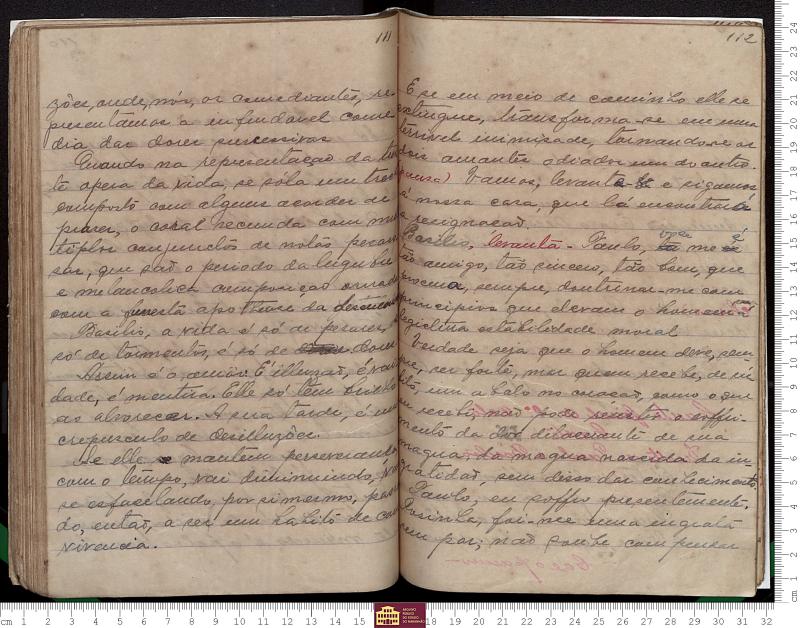 111
zões, onde, nós, os comediantes, re-
presentamos a infindavel come
dia das dores successivas
Quando na representação da
te opera da vida, se sóla um
composto com alguns acordes de
prazer, o coral secunda com mul
tiplos conjunctos de notas
que são o periodo da lugubre
e melancolica composição
com a funesta apotheose da
Basilio, a vida é só de pezares,
só de tormentos, é só de dores
Assim é o amor. É illuzão, é vai
dade, é mentira. Elle só tem brilho
ao alvorecer. A sua tarde, é um
crepusculo de desilluzões.
Se elle se mantem perseverando
com o tempo, vai diminuindo,
se esfacelando, por si mesmo, pas
do, então, a ser um habito de con
vivencia.
112
E se em meio de caminho elle se
extingue, transforma-se em uma
terrivel inimisade, tornando-se os
dois amantes odiados um do outro.
(pausa) Vamos, levanta e sigamos
á nossa casa, que lá encontrará
a resignação.
Basilio, levanta - Paulo, você me é
tão amigo, tão sincero, tão bom, que
procura, sempre, doutrinar-me com
principios que elevam o homem á
legictima estabilidade moral
Verdade seja que o homem deve, sem
pre, ser forte, mas quem recebe, de
um abalo no coração, como o que
eu recebi, não pode o soffri-
mento da dôr dilacerante de sua
magua, da magua nascida da in-
gratidão, sem disso dar conhecimento.
Paulo, eu soffro presentemente.
Rosinha, foi-me uma ingrata
sem par; não soube compensar
cm 1 2 3 4 5 6 7 8 9 10 11 12 13 14 15 16
ARQUIVO PÚBLICO DO ESTADO DO MARANHÃO
18 19 20 21 22 23 24 25 26 27 28 29 30 31 32
cm 1 2 3 4 5 6 7 8 9 10 11 12 13 14 15 16 17 18 19 20 21 22 23 24